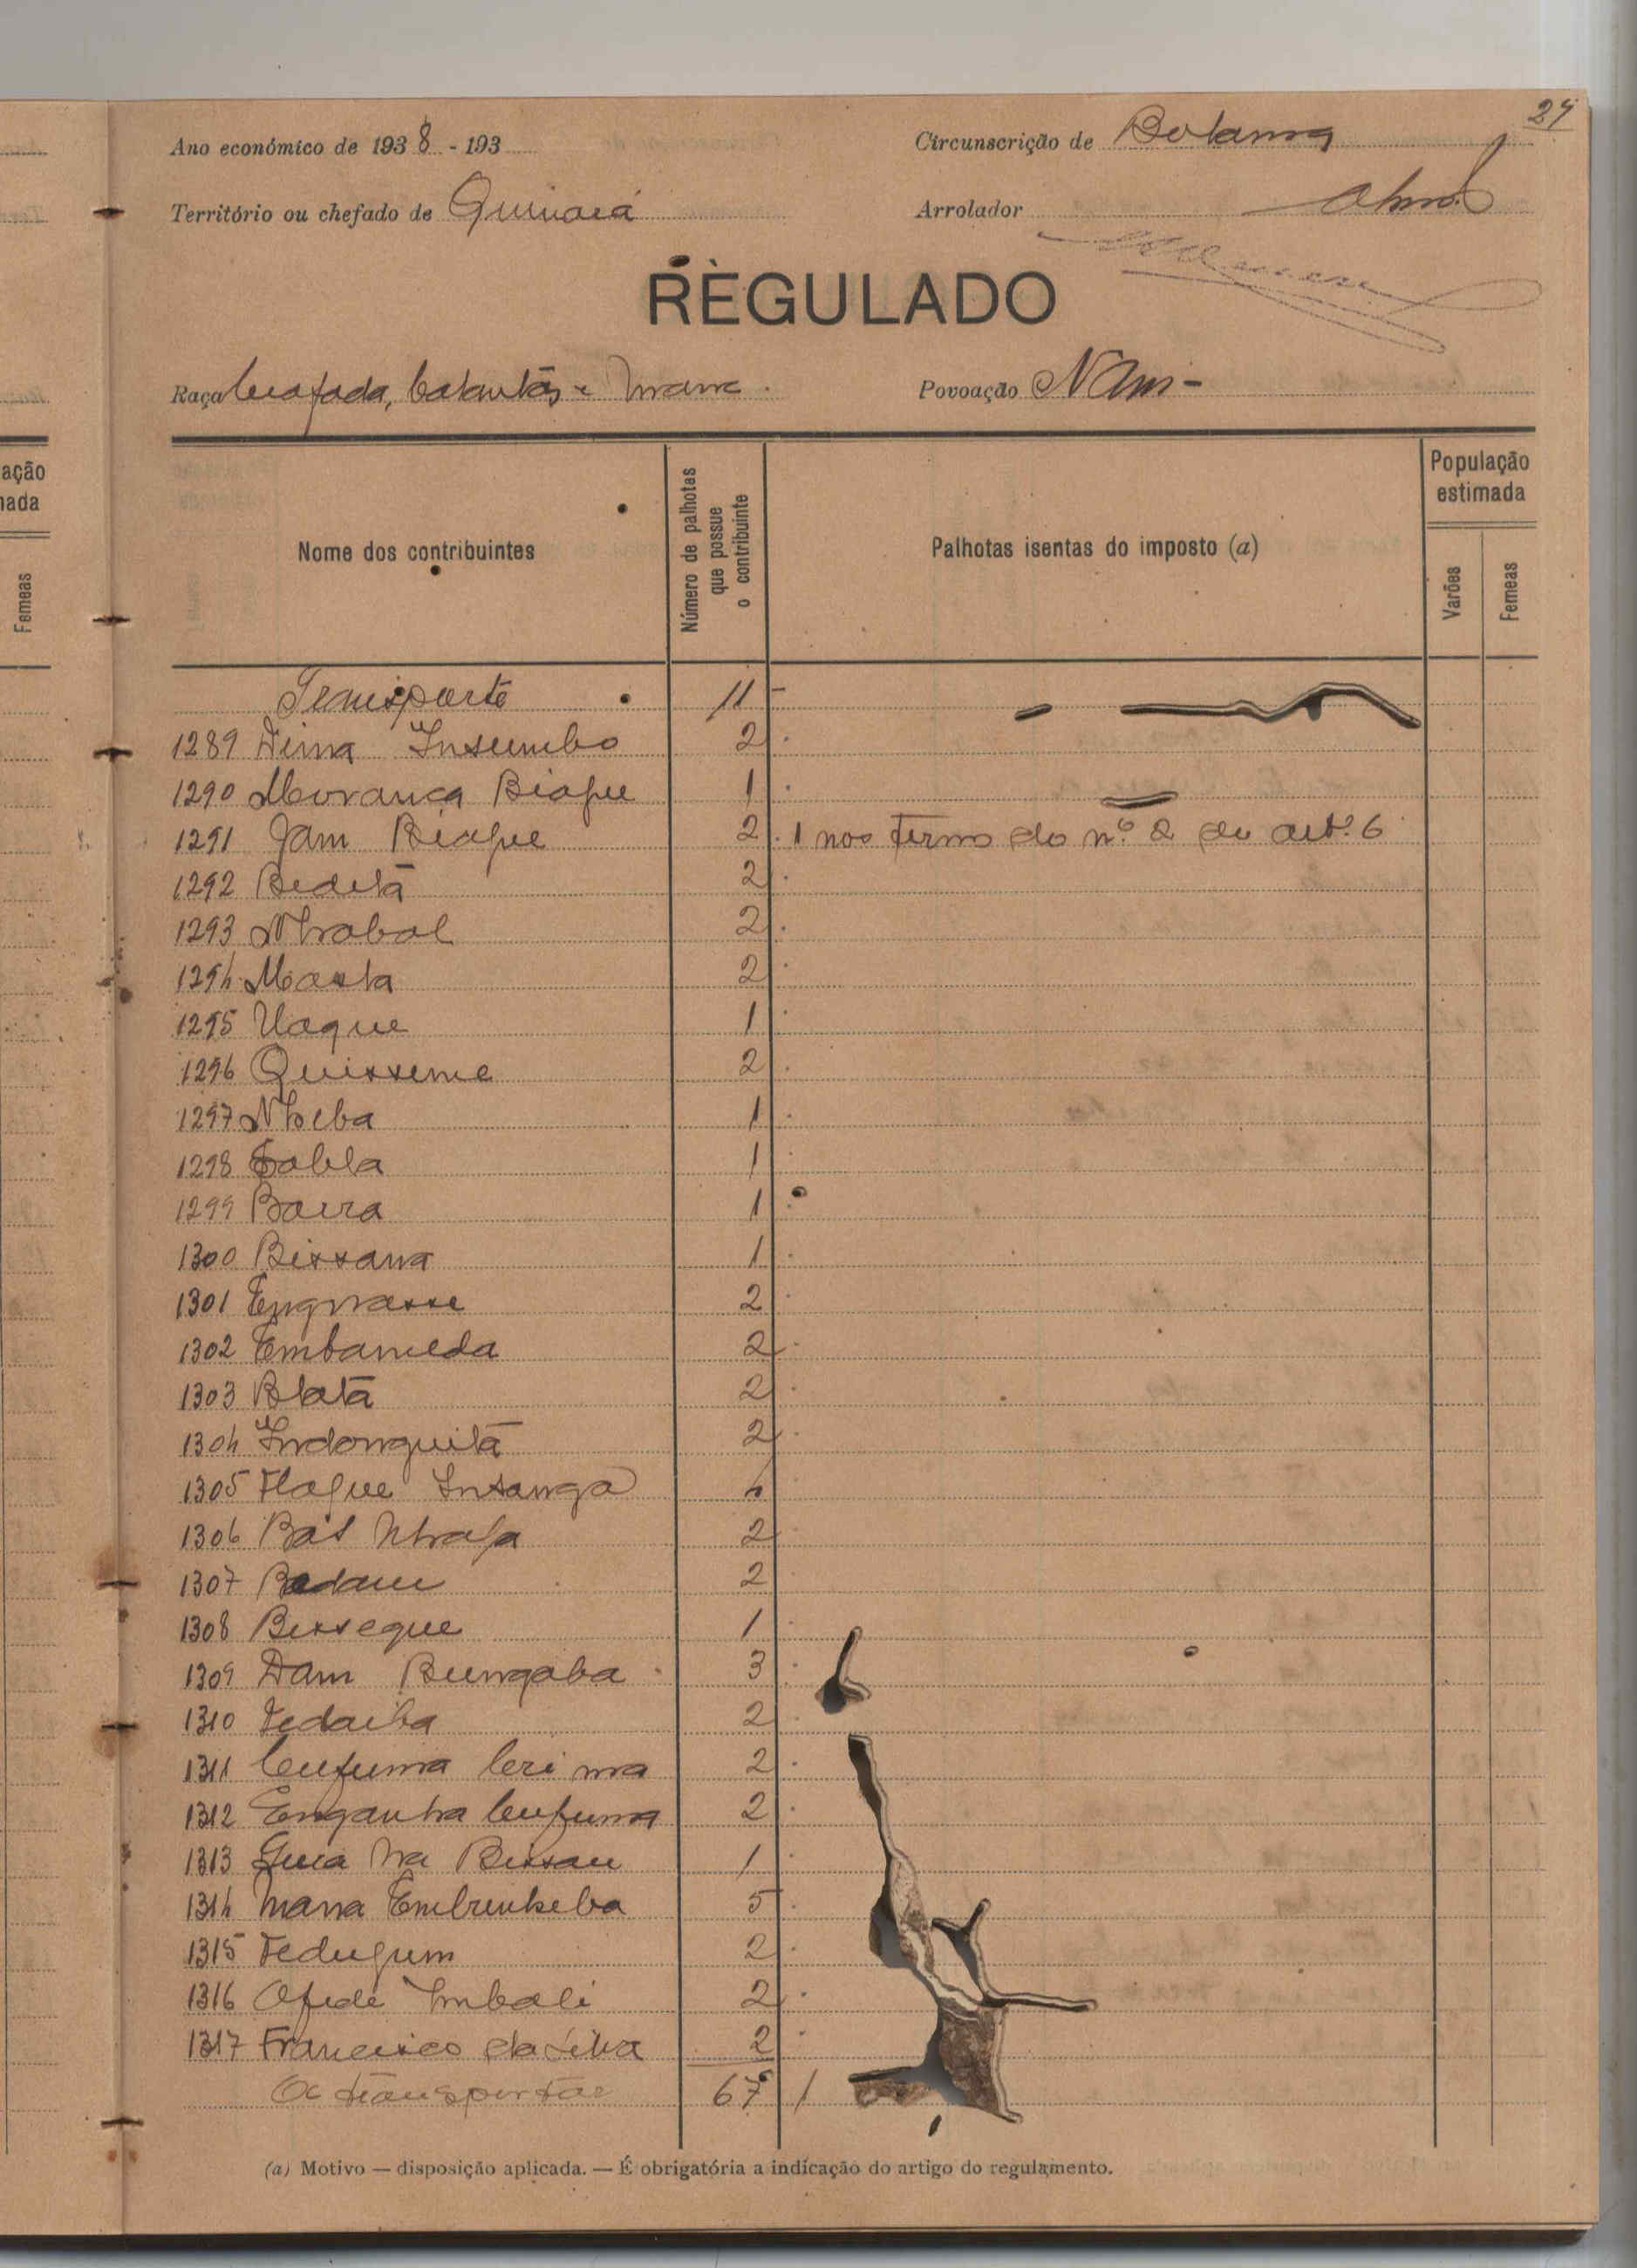 27
Ano económico de 1938 - 193
Circunscrição de Bolama
Território ou chefado de Quinará
Arrolador
REGULADO
Raça Beafada, balantas e mane
Povoação Nam-
ação
nada
Femeas
Nome dos contribuintes
Número de palhotas que possue o contribuinte
Palhotas isentas do imposto (a)
População estimada
Varões
Femeas
Transporte 11 -
1289 Dima Insumbo 2
1290 Morança Biague 1
1291 Jam Biague 2 1 nos termo do nº 2 do artº 6
1292 Bedetã 2
1293 Nhabal 2
1294 Masta 2
1295 Uaque 1
1296 Quisseme 2
1297 Nheba 1
1298 Tabla 1
1299 Baira 1
1300 Bissana 1
1301 Engnasse 2
1302 Embameda 2
1303 Blatã 2
1304 Indonguitã 2
1305 Flaque Insanga
1306 Nhaga 2
1307 Badam 2
1308 Bisseque 1
1309 Dam Bungaba 3
1310 Tedaiba 2
1311 Cufuma 2
1312 Enganha Cufuma 2
1313 na Bissau 1
1314 Mana 5
1315 Fedugum 2
1316 Ofidé Imbali 2
1317 Francisco da Silva 2
A transportar 67 1
(a) Motivo — disposição aplicada. — É obrigatória a indicação do artigo do regulamento.